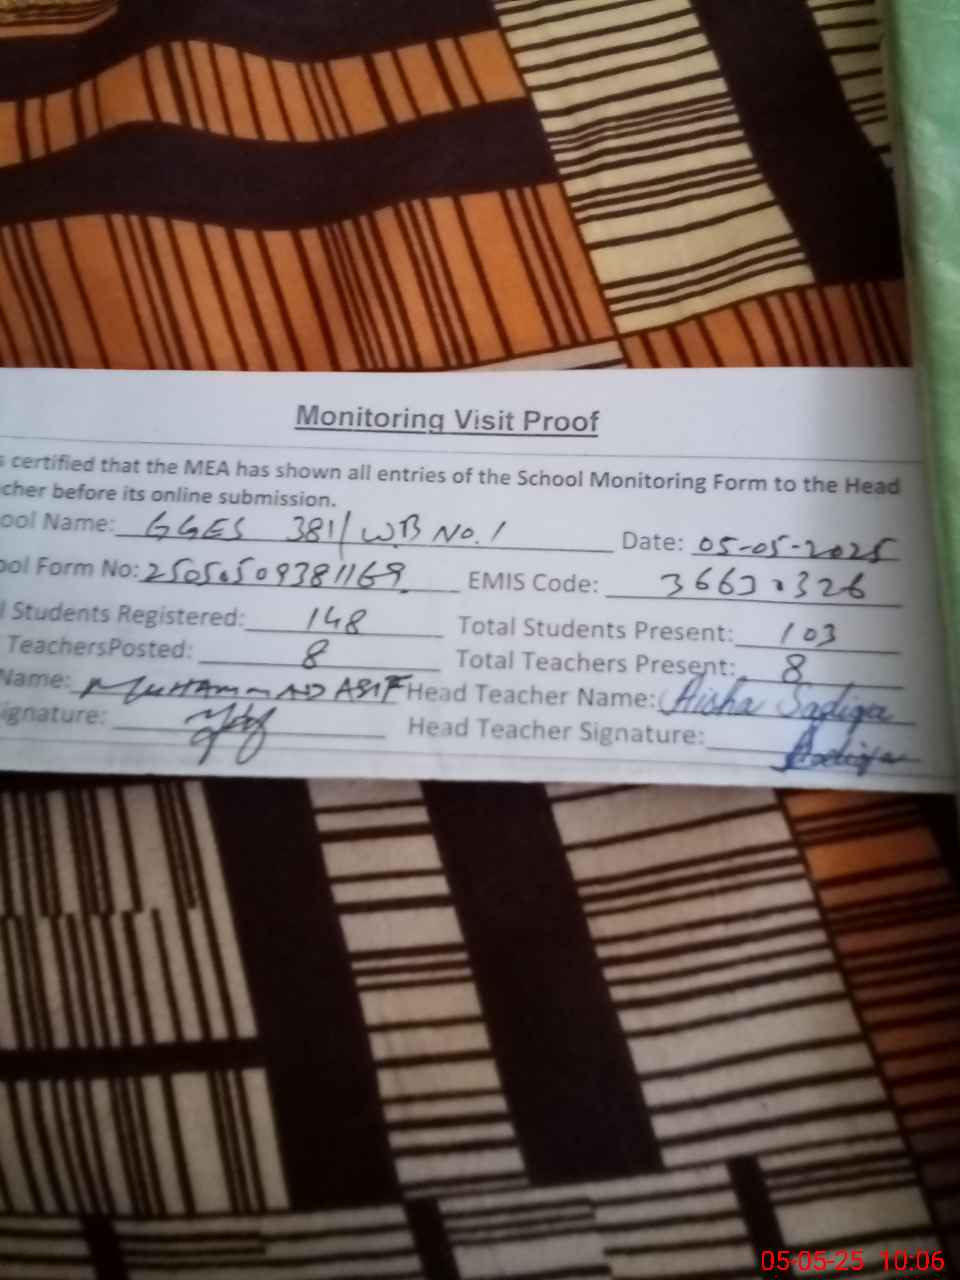 Monitoring Visit Proof
s certified that the MEA has shown all entries of the School Monitoring Form to the Head
cher before its online submission.
ool Name: GGES 381/WB No. 1 Date: 05-05-2025
ool Form No: EMIS Code:
l Students Registered: 148 Total Students Present: 103
TeachersPosted: 8 Total Teachers Present: 8
Name: MUHAMMAD ASIF Head Teacher Name: Aisha Sadiqa
ignature: Head Teacher Signature: Sadiqa
05-05-25 10:06